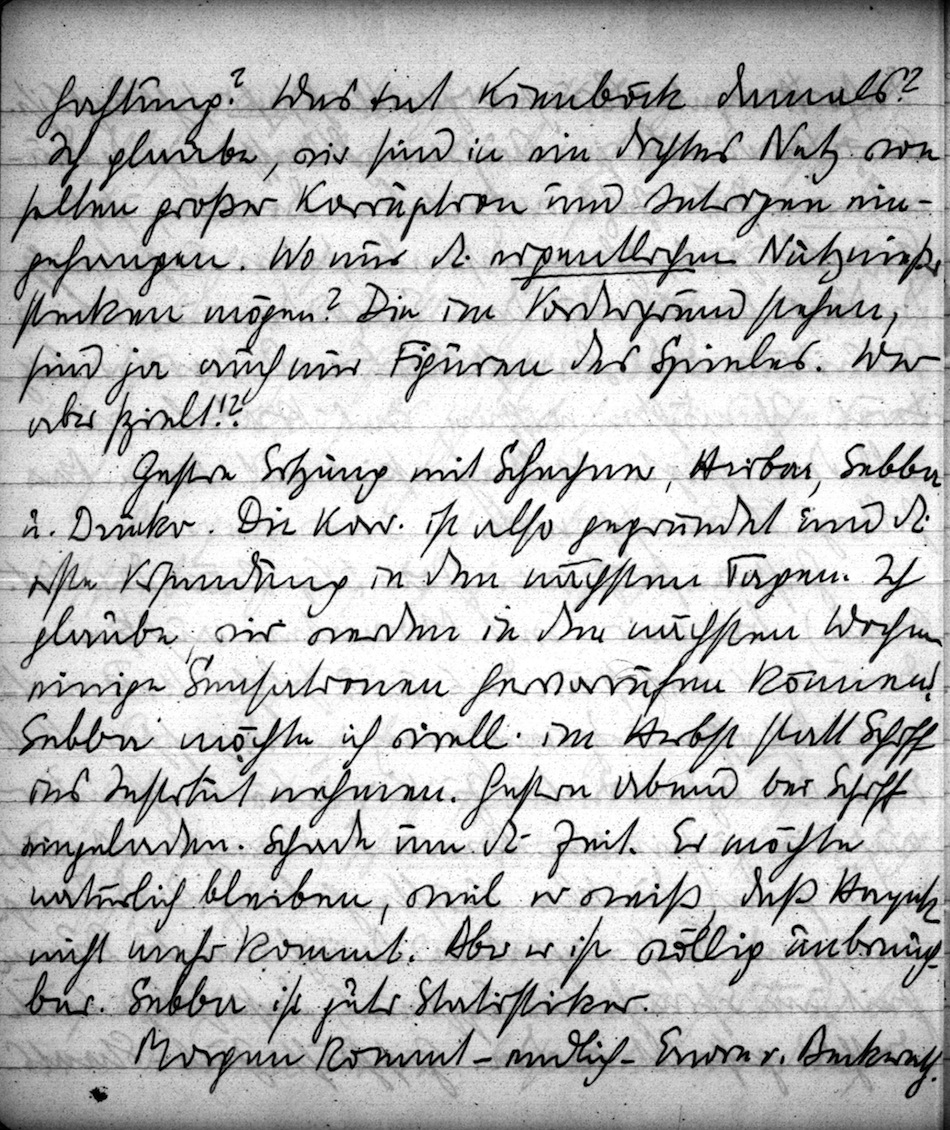 haftung? Was tut Kienböck damals?
Ich glaube, wir sind in ein dichtes Netz von
selten großer Korruption und Intrigen ein-
gefangen. Wo nur d. eigentlichen Nutznießer
stecken mögen? Die im Vordergrund stehen,
sind ja auch nur Figuren des Spieles. Wer
aber spielt!?
Gestern Sitzung mit Schechner, Hudeczek
u. Die Korr. ist also gegründet und d.
erste Versendung in den nächsten Tagen. Ich
glaube, wir werden in den nächsten Wochen
einige Sensationen hervorrufen können!
möchte ich eventl. im Herbst statt Schiff
ins Institut nehmen. Gestern abend bei Schiff
eingeladen. Schade um d. Zeit. Er möchte
natürlich bleiben, weil er weiß, daß Hayek
nicht mehr kommt. Aber er ist völlig unbrauch-
bar. ist guter Statistiker.
Morgen kommt – endlich – Erwin v. Beckerath.